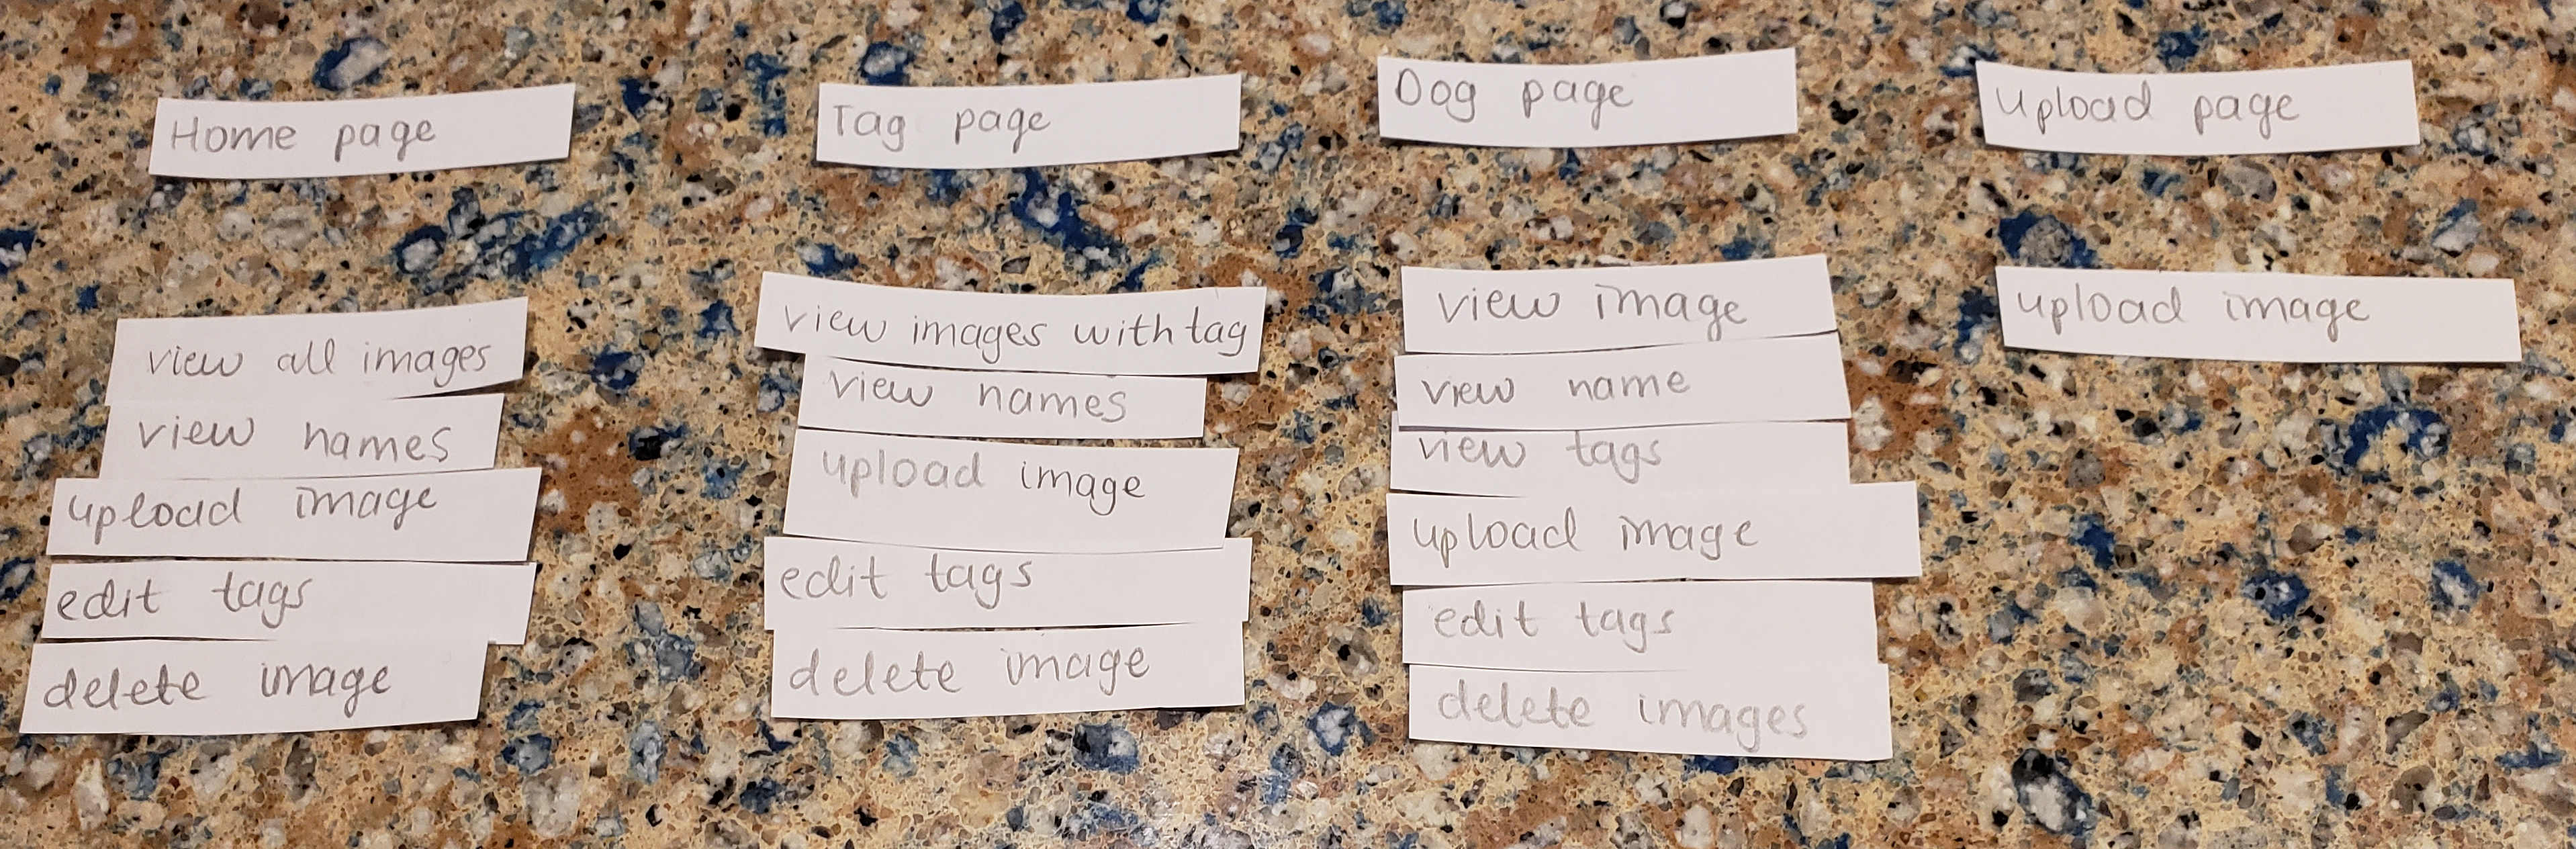 Home page
view all images
view names
upload image
edit tags
delete image
Tag page
view images with tag
view names
upload image
edit tags
delete image
Dog page
view image
view name
view tags
upload image
edit tags
delete images
upload page
upload image